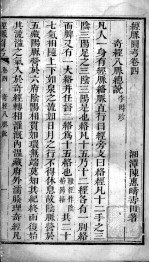 經脈圖考卷四
奇經八脈總說 李時珍
凡人一身有經脈絡脈直行曰經旁支曰絡經凡十二手之三
陰三陽足之三陰三陽是也絡凡十五乃十二經各有一別絡
而脾又有一大絡並任督二絡為十五也難經作陰絡陽絡共二十
七氣相隨上下如泉之流如日月之行不得休息故陰脈營於
五臟陽脈營於六腑陰陽相貫如環無端莫知其紀終而復始
其流溢之氣入於奇經轉相灌溉內溫臟腑外濡腠理奇經凡
卷四